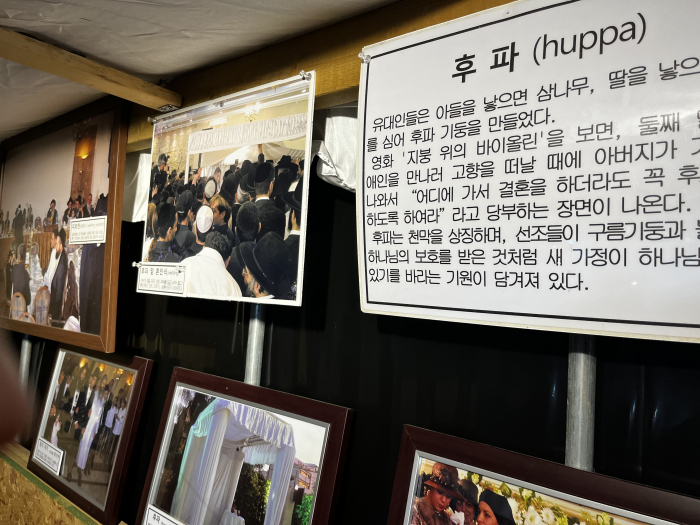 후 파 (huppa)
유대인들은 아들을 낳으면 삼나무, 딸을 낳으
를 심어 후파 기둥을 만들었다.
영화 '지붕 위의 바이올린'을 보면, 둘째
애인을 만나러 고향을 떠날 때에 아버지가
나와서 “어디에 가서 결혼을 하더라도 꼭 후
하도록 하여라” 라고 당부하는 장면이 나온다.
후파는 천막을 상징하며, 선조들이 구름기둥과
하나님의 보호를 받은 것처럼 새 가정이 하나님
있기를 바라는 기원이 담겨져 있다.